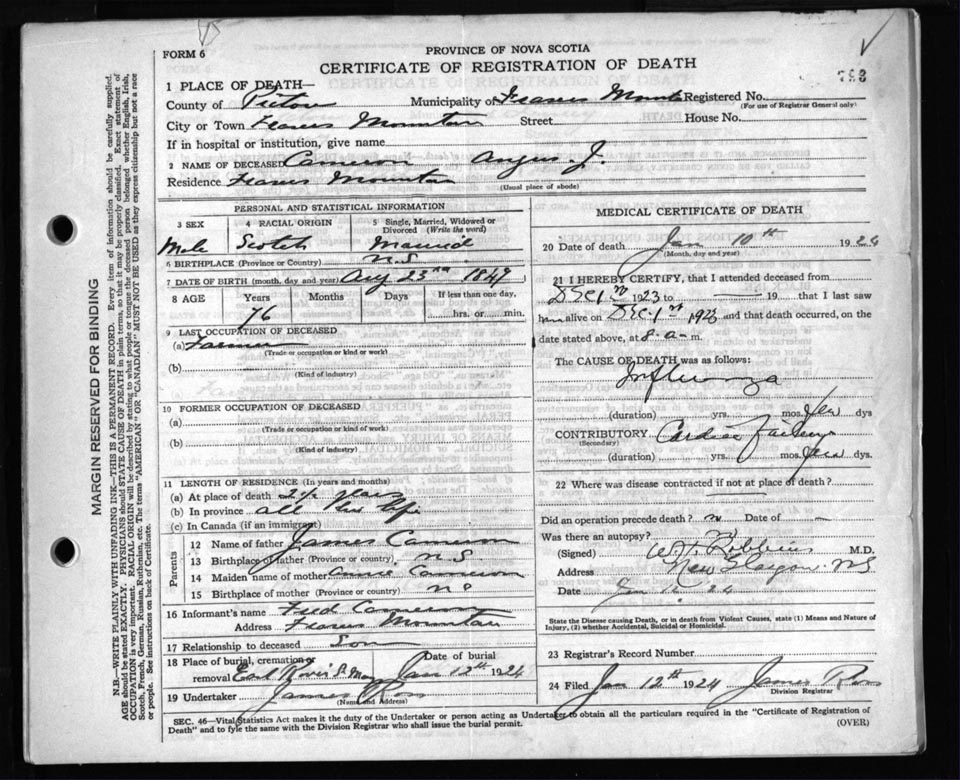 FORM 6
PROVINCE OF NOVA SCOTIA
CERTIFICATE OF REGISTRATION OF DEATH
793
1 PLACE OF DEATH—
County of Pictou Municipality of Frasers Mount Registered No.
(For use of Registrar General only)
City or Town Frasers Mountain Street House No.
If in hospital or institution, give name
2 NAME OF DECEASED Cameron Angus. J.
Residence Frasers Mountain
(Usual place of abode)
PERSONAL AND STATISTICAL INFORMATION
3 SEX 4 RACIAL ORIGIN 5 Single, Married, Widowed or Divorced (Write the word)
Male Scotch Married
6 BIRTHPLACE (Province or Country) N.S.
7 DATE OF BIRTH (month, day and year) Aug 23rd 1847
8 AGE Years Months Days If less than one day,
76 hrs. or min.
9 LAST OCCUPATION OF DECEASED
(a) Farmer
(Trade or occupation or kind or work)
(b)
(Kind of industry)
10 FORMER OCCUPATION OF DECEASED
(a)
(Trade or occupation or kind of work)
(b)
(Kind of industry)
11 LENGTH OF RESIDENCE (In years and months)
(a) At place of death years
(b) In province all his life
(c) In Canada (if an immigrant)
Parents
12 Name of father James Cameron
13 Birthplace of father (Province or country) N S
14 Maiden name of mother Annie Cameron
15 Birthplace of mother (Province or country) N S
16 Informant's name Fred Cameron
Address Frasers Mountain
17 Relationship to deceased Son
18 Place of burial, cremation or removal East River St Mary Date of burial Jan 12th 1924
19 Undertaker James Ross
(Name and Address)
MEDICAL CERTIFICATE OF DEATH
20 Date of death Jan 10th 1924
(Month, day and year)
21 I HEREBY CERTIFY, that I attended deceased from
Dec 1923 to — 19 that I last saw
him alive on Dec. 1923 and that death occurred, on
date stated above, at 8 a m.
The CAUSE OF DEATH was as follows:
Influenza
(duration) yrs. mos. few dys
CONTRIBUTORY Cardiac failure
(Secondary)
(duration) yrs. mos. few dys.
22 Where was disease contracted if not at place of death?
Did an operation precede death? n Date of —
Was there an autopsy? No
(Signed) W. H. Robbins M.D.
Address New Glasgow. N S
Date Jan 24
State the Disease causing Death, or in death from Violent Causes, state (1) Means and Nature of
Injury, (2) whether Accidental, Suicidal or Homicidal.
23 Registrar's Record Number
24 Filed Jan 12th 1924 James Ross
Division Registrar
SEC. 46—Vital Statistics Act makes it the duty of the Undertaker or person acting as Undertaker to obtain all the particulars required in the "Certificate of Registration of
Death" and to fyle the same with the Division Registrar who shall issue the burial permit.
(OVER)
MARGIN RESERVED FOR BINDING
N.B.—WRITE PLAINLY WITH UNFADING INK—THIS IS A PERMANENT RECORD. Every item of information should be carefully supplied.
AGE should be stated EXACTLY. PHYSICIANS should STATE CAUSE OF DEATH in plain terms, so that it may be properly classified. Exact statement of
OCCUPATION is very important. RACIAL ORIGIN will be described by stating to what people or tongue the deceased person belonged whether English, Irish,
Scotch, French, German, Russian, Ruthenian, etc. The terms "AMERICAN" or "CANADIAN" MUST NOT BE USED as they express citizenship but not a race
or people. See instructions on back of Certificate.